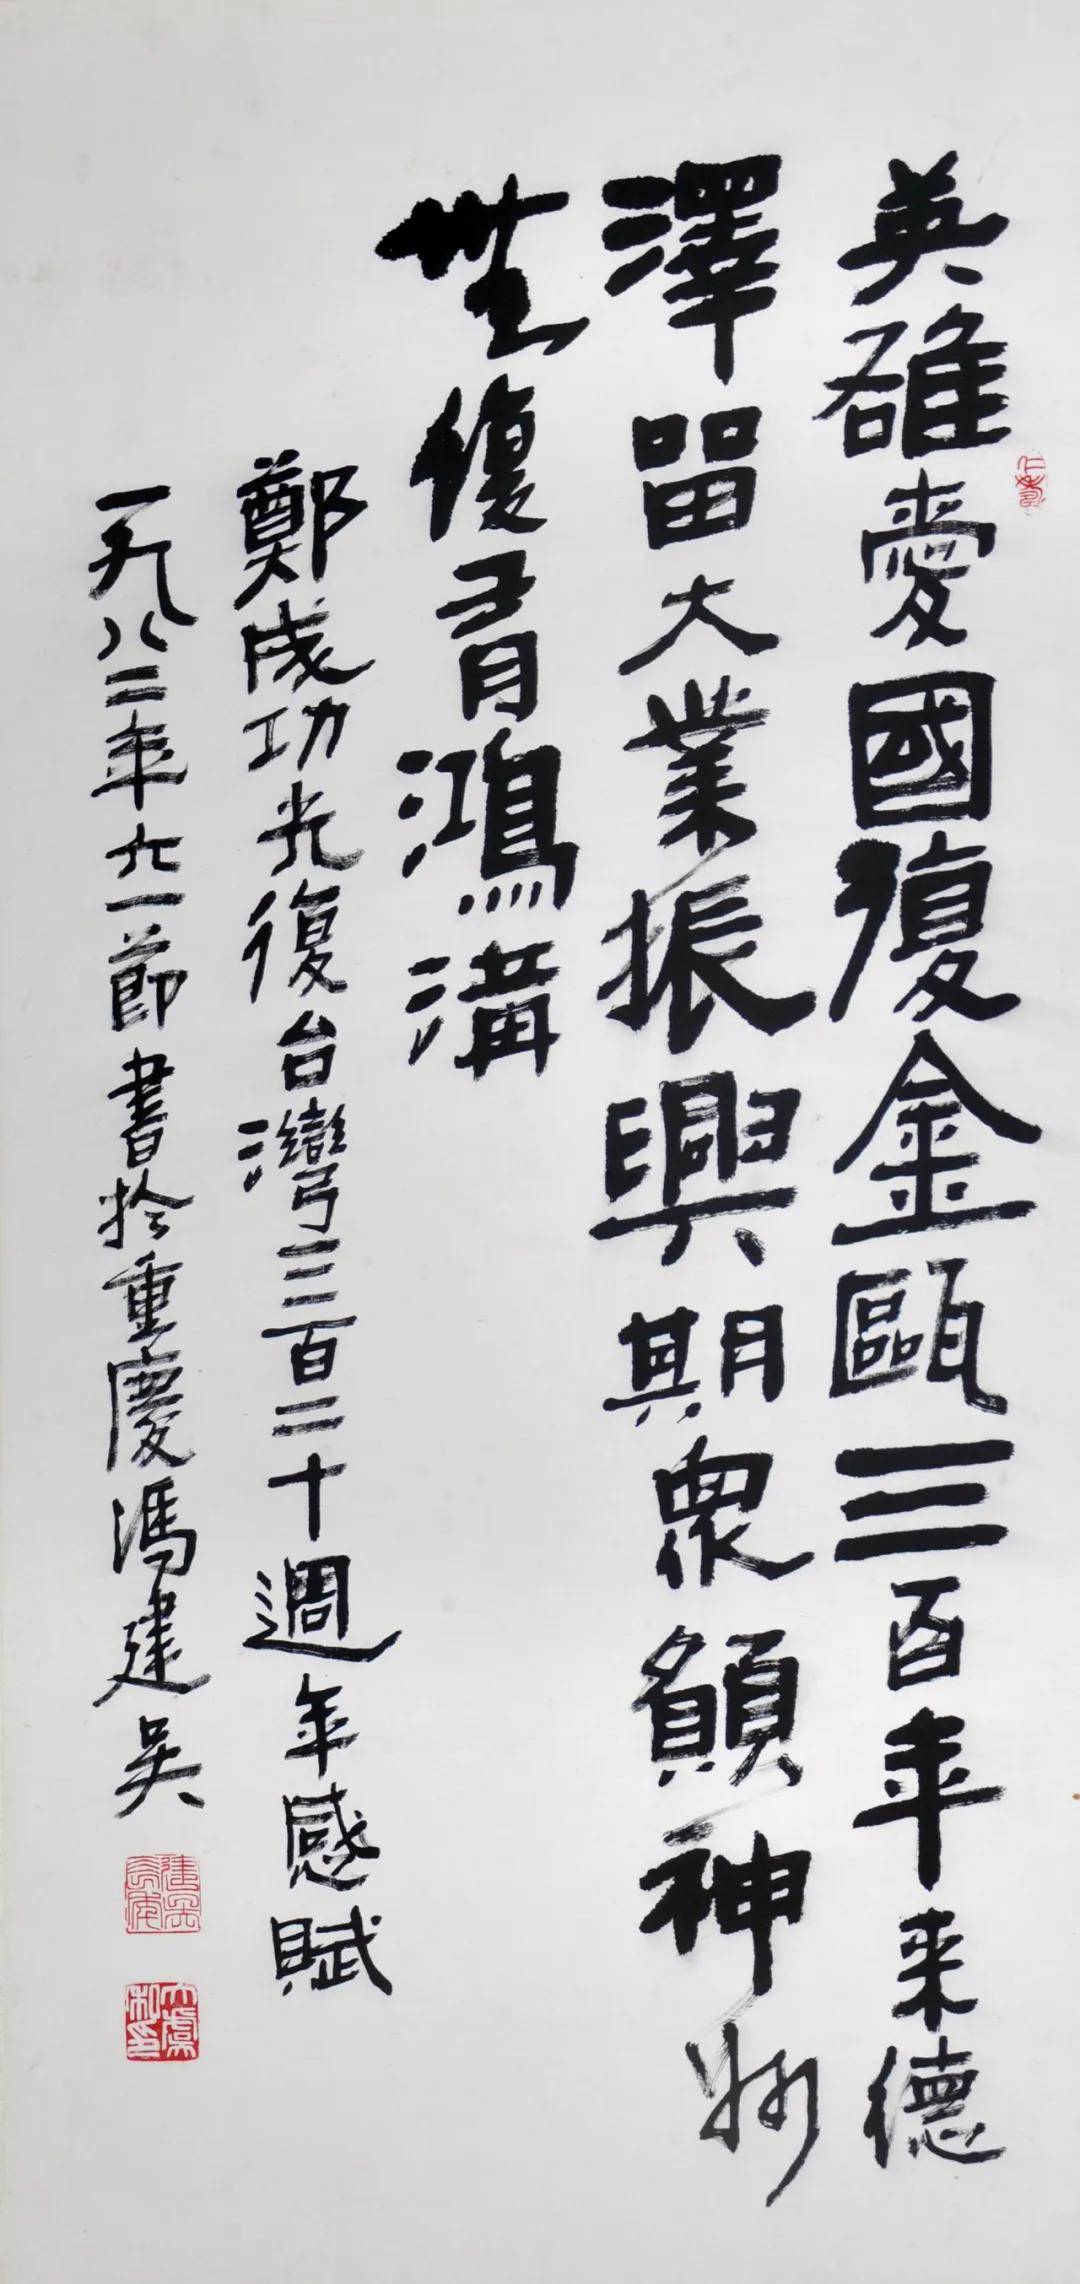 英雄愛國復金甌三百年来德
澤畱大業振興期衆願神州
無復有鴻溝
鄭成功光復台灣三百二十週年感賦
一九八二年六一節書於重慶馮建吳